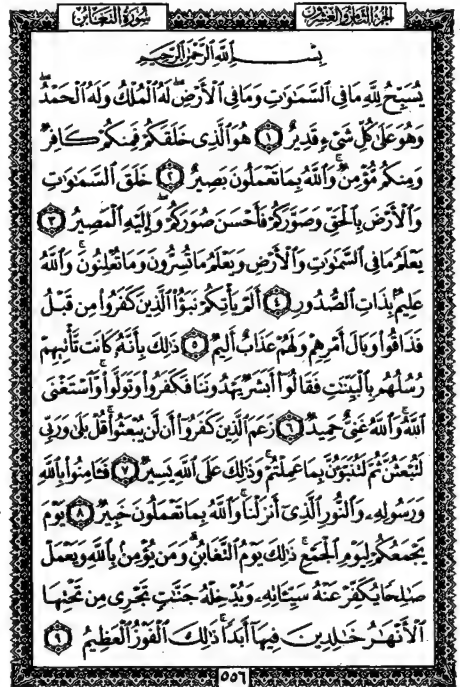 سُورَةُ التَّغَابُنِ
الجُزْءُ الثَّامِنُ وَالعِشْرُونَ
بِسْمِ ٱللَّهِ ٱلرَّحْمَٰنِ ٱلرَّحِيمِ
يُسَبِّحُ لِلَّهِ مَا فِي ٱلسَّمَٰوَٰتِ وَمَا فِي ٱلْأَرْضِۖ لَهُ ٱلْمُلْكُ وَلَهُ ٱلْحَمْدُۖ
وَهُوَ عَلَىٰ كُلِّ شَيْءٍ قَدِيرٌ ١ هُوَ ٱلَّذِي خَلَقَكُمْ فَمِنكُمْ كَافِرٌ
وَمِنكُم مُّؤْمِنٌۚ وَٱللَّهُ بِمَا تَعْمَلُونَ بَصِيرٌ ٢ خَلَقَ ٱلسَّمَٰوَٰتِ
وَٱلْأَرْضَ بِٱلْحَقِّ وَصَوَّرَكُمْ فَأَحْسَنَ صُوَرَكُمْۖ وَإِلَيْهِ ٱلْمَصِيرُ ٣
يَعْلَمُ مَا فِي ٱلسَّمَٰوَٰتِ وَٱلْأَرْضِ وَيَعْلَمُ مَا تُسِرُّونَ وَمَا تُعْلِنُونَۚ وَٱللَّهُ
عَلِيمٌۢ بِذَاتِ ٱلصُّدُورِ ٤ أَلَمْ يَأْتِكُمْ نَبَؤُاْ ٱلَّذِينَ كَفَرُواْ مِن قَبْلُ
فَذَاقُواْ وَبَالَ أَمْرِهِمْ وَلَهُمْ عَذَابٌ أَلِيمٌ ٥ ذَٰلِكَ بِأَنَّهُۥ كَانَت تَّأْتِيهِمْ
رُسُلُهُم بِٱلْبَيِّنَٰتِ فَقَالُوٓاْ أَبَشَرٌ يَهْدُونَنَا فَكَفَرُواْ وَتَوَلَّواْۚ وَّٱسْتَغْنَى
ٱللَّهُۚ وَٱللَّهُ غَنِيٌّ حَمِيدٌ ٦ زَعَمَ ٱلَّذِينَ كَفَرُوٓاْ أَن لَّن يُبْعَثُواْۚ قُلْ بَلَىٰ وَرَبِّي
لَتُبْعَثُنَّ ثُمَّ لَتُنَبَّؤُنَّ بِمَا عَمِلْتُمْۚ وَذَٰلِكَ عَلَى ٱللَّهِ يَسِيرٌ ٧ فَـَٔامِنُواْ بِٱللَّهِ
وَرَسُولِهِۦ وَٱلنُّورِ ٱلَّذِيٓ أَنزَلْنَاۚ وَٱللَّهُ بِمَا تَعْمَلُونَ خَبِيرٌ ٨ يَوْمَ
يَجْمَعُكُمْ لِيَوْمِ ٱلْجَمْعِۖ ذَٰلِكَ يَوْمُ ٱلتَّغَابُنِۗ وَمَن يُؤْمِنۢ بِٱللَّهِ وَيَعْمَلْ
صَٰلِحًا يُكَفِّرْ عَنْهُ سَيِّـَٔاتِهِۦ وَيُدْخِلْهُ جَنَّٰتٍ تَجْرِي مِن تَحْتِهَا
ٱلْأَنْهَٰرُ خَٰلِدِينَ فِيهَآ أَبَدًاۚ ذَٰلِكَ ٱلْفَوْزُ ٱلْعَظِيمُ ٩
٥٥٦